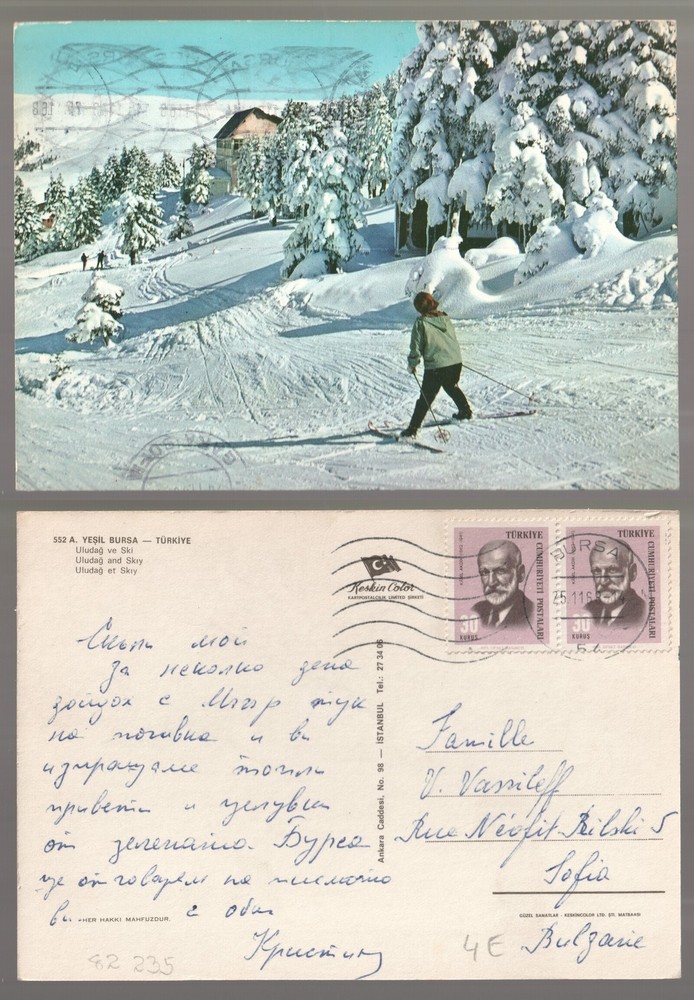 552 A. YEŞİL BURSA — TÜRKİYE
Uludağ ve Ski
Uludağ and Skıy
Uludağ et Skıy
Keskin Color
KARTPOSTALCILIK LİMİTED ŞİRKETİ
TÜRKİYE CUMHURİYETİ POSTALARI
30
KURUŞ
TÜRKİYE CUMHURİYETİ POSTALARI
30
KURUŞ
BURSA
Ankara Caddesi, No. 98 — İSTANBUL Tel.: 27 34 06
мои
За неколко дена
дойдох с тук
на почивка и ви
изпращаме топли
привети и целувки
от зелената Бурса
ще отговарям на писмата
ви с обич
HER HAKKI MAHFUZDUR.
Famille
V. Vassileff
Rue Néofit Rilski 5
Sofia
GÜZEL SANATLAR - KESKİNCOLOR LTD. ŞTİ. MATBAASI
Bulgarie
82 235
4E